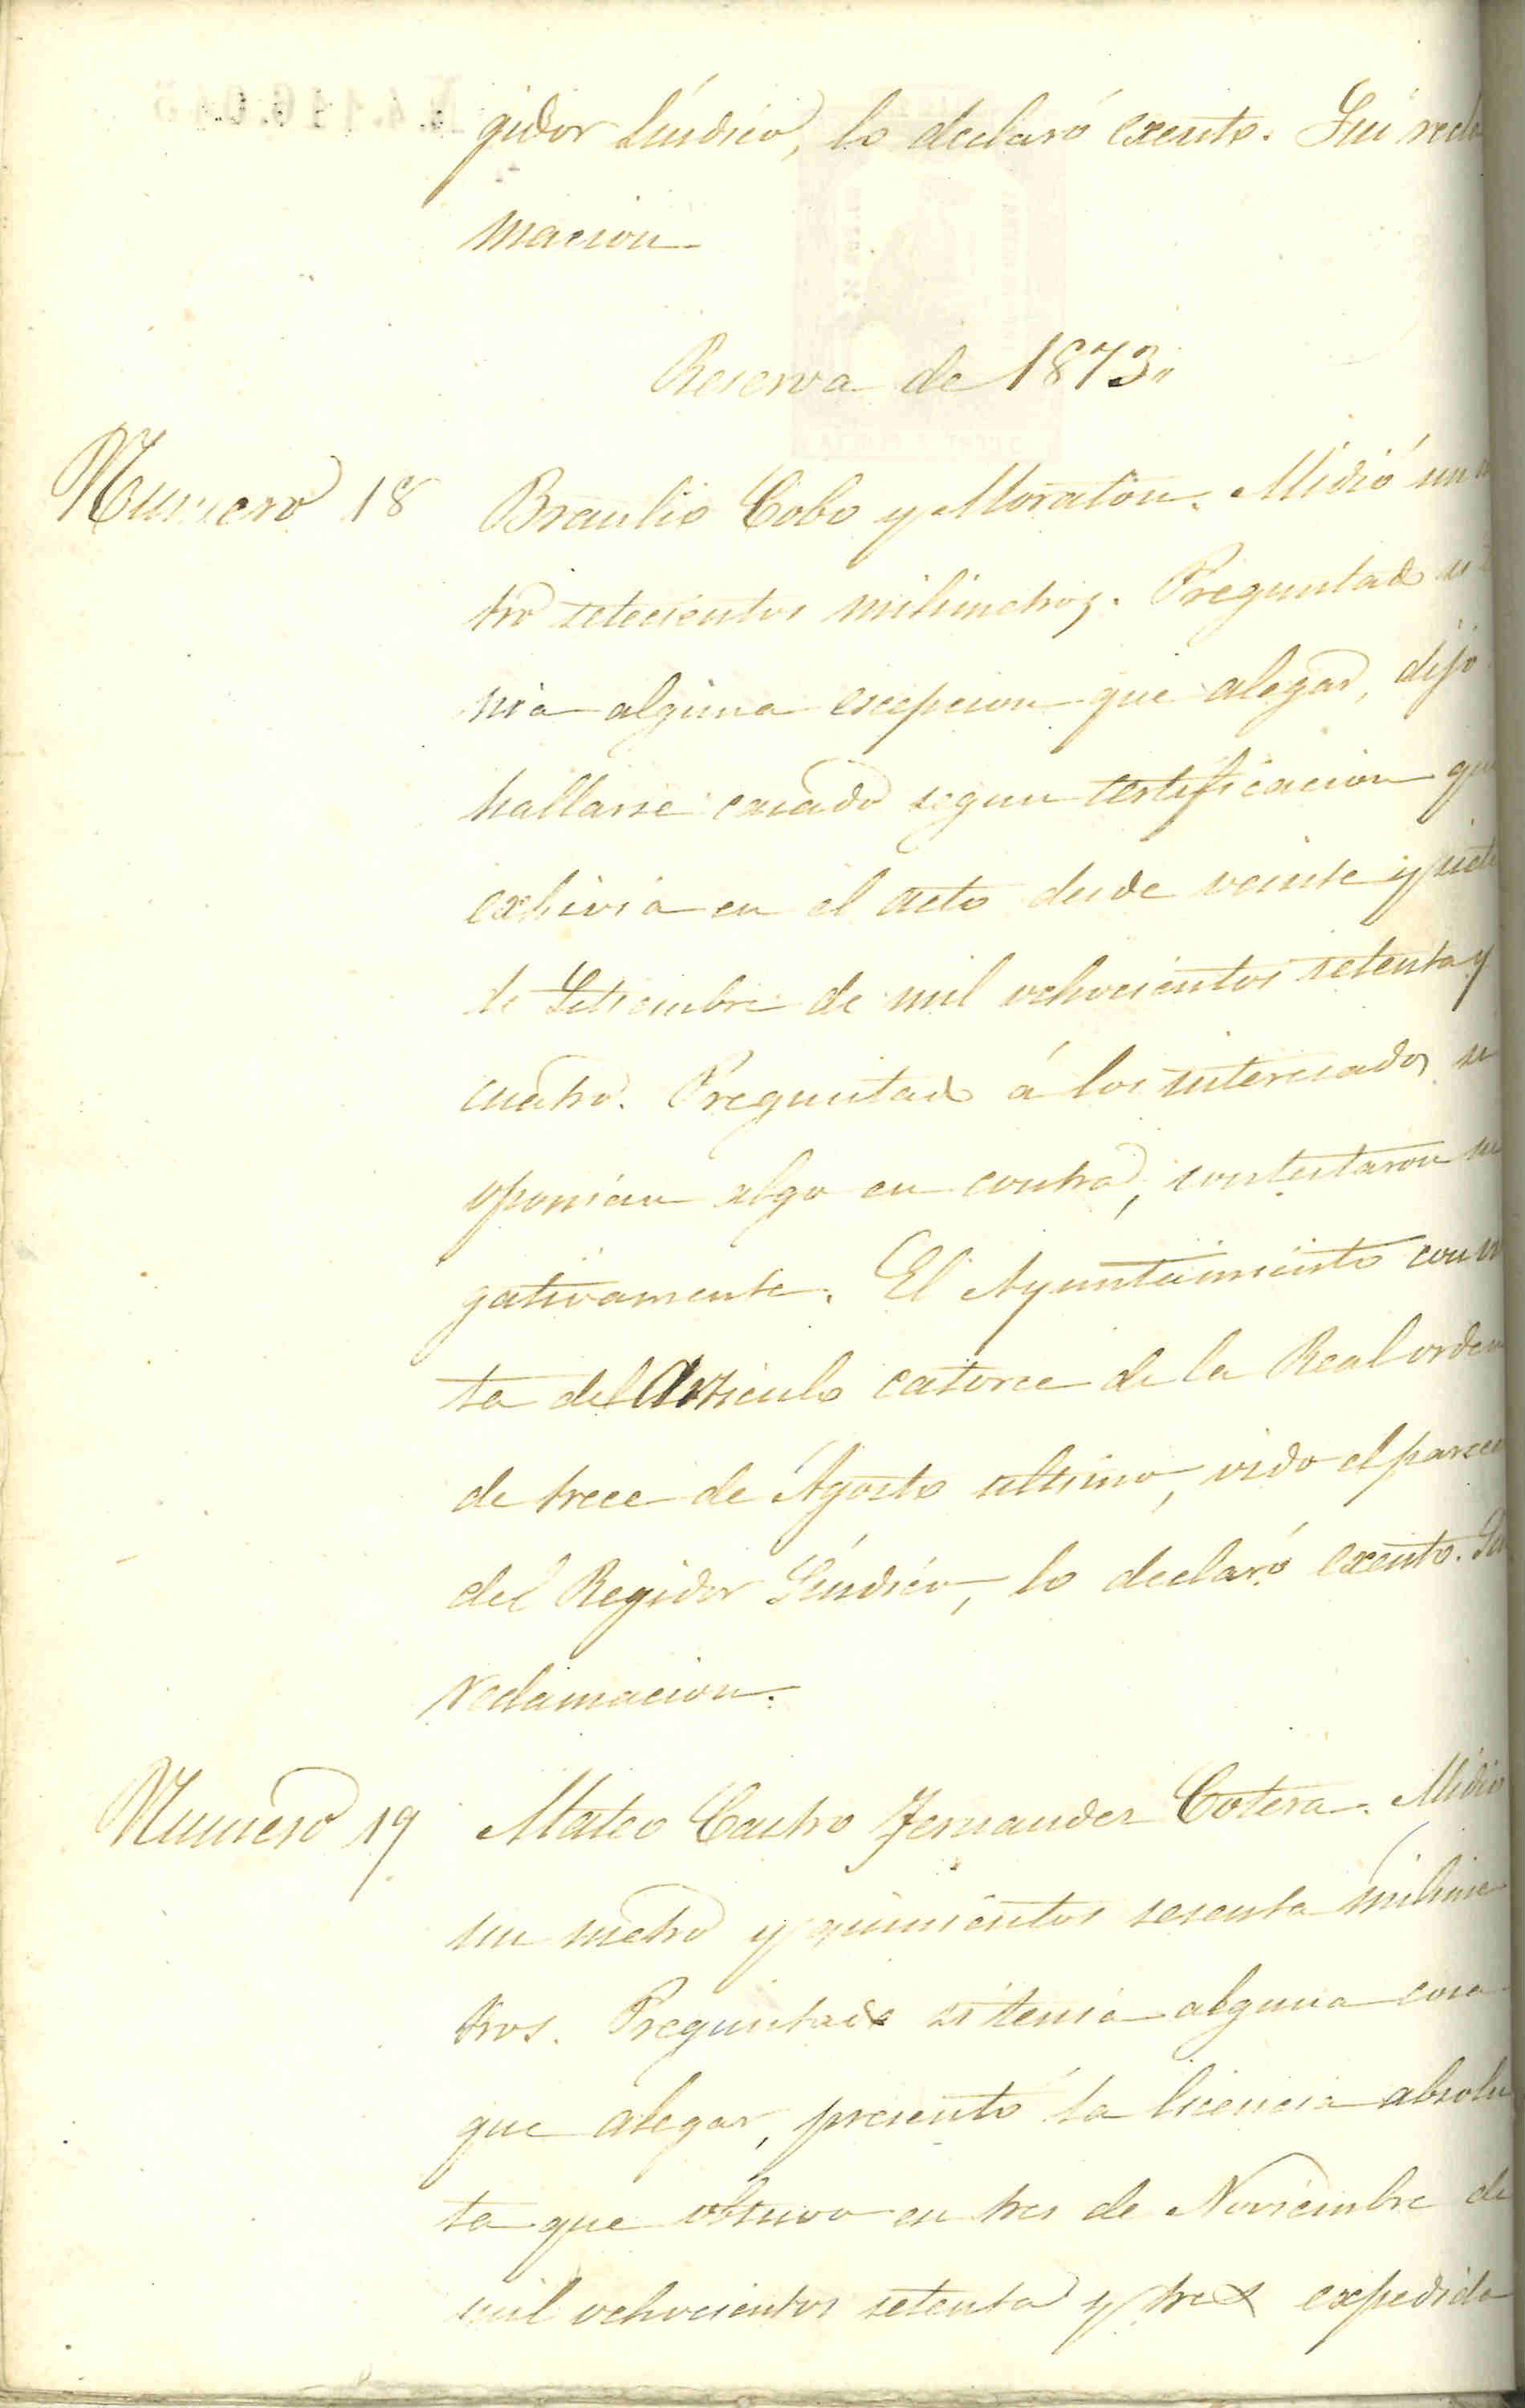 N.4.116.045
gidor Síndico, lo declaró exento. Sin recla
macion
Reserva de 1873.,
Numero 18 Braulio Cobo y Moraton. Midió un
tro setecientos milimetros. Preguntado si
nia alguna escepcion que alegar, dijo
hallarse casado segun certificacion que
exhivia en el acto desde veinte y siete
de Setiembre de mil ochocientos setenta y
cuatro. Preguntado á los interesados si
oponian algo en contra, contestaron ne
gativamente. El Ayuntamiento con vis
ta del Articulo catorce de la Real orden
de trece de Agosto ultimo, oido el parecer
del Regidor Síndico, lo declaró exento. Sin
reclamacion.
Numero 19 Mateo Castro Fernandez Cotera. Midió
un metro y quinientos sesenta milime
tros. Preguntado si tenia alguna cosa
que alegar, presentó la licencia absolu
ta que obtuvo en tres de Noviembre de
mil ochocientos setenta y tres expedida